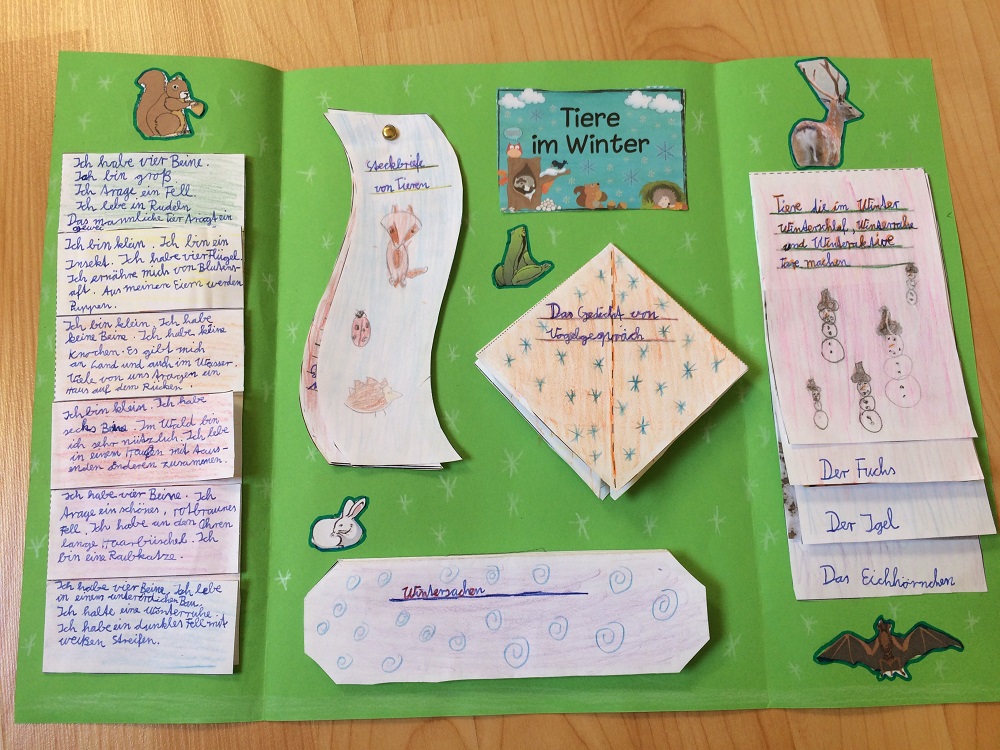 Ich habe vier Beine.
Ich bin groß
Ich Arage ein Fell
Ich lebe in Rudeln
Das männliche Tier Aragt ein
gewei
Ich bin klein. Ich bin ein
Insekt. Ich habe vier Flügel.
Ich ernähre mich von Blutins-
aft. Aus meinenen Eiern werden
Puppen.
Ich bin klein. Ich habe
keine Beine. Ich habe keine
Knochen. Es gibt mich
an Land und auch im Wasser.
Viele von uns Aragen ein
Haus auf dem Rücken.
Ich bin klein. Ich habe
sechs Beine. Im Wald bin
ich sehr nützlich. Ich lebe
in einem Haufen mit Aaus-
enden Anderen zusammen.
Ich habe vier Beine. Ich
Arage ein schönes, rotbraunes
Fell. Ich habe an den Ohren
lange Haarbüschel. Ich
bin eine Raubkatze.
Ich habe vier Beine. Ich lebe
in einem unterirdischen Bau.
Ich halte eine Winterruhe.
Ich habe ein dunkles Fell mit
weißen Streifen.
Steckbriefe
von Tieren
Tiere
im Winter
Das Gedicht von
Vogelgespräch
Wintersachen
Tiere die im Winter
Winterschlaf, Winterruhe
und Winteraktive
tage machen
Der Fuchs
Der Igel
Das Eichhörnchen